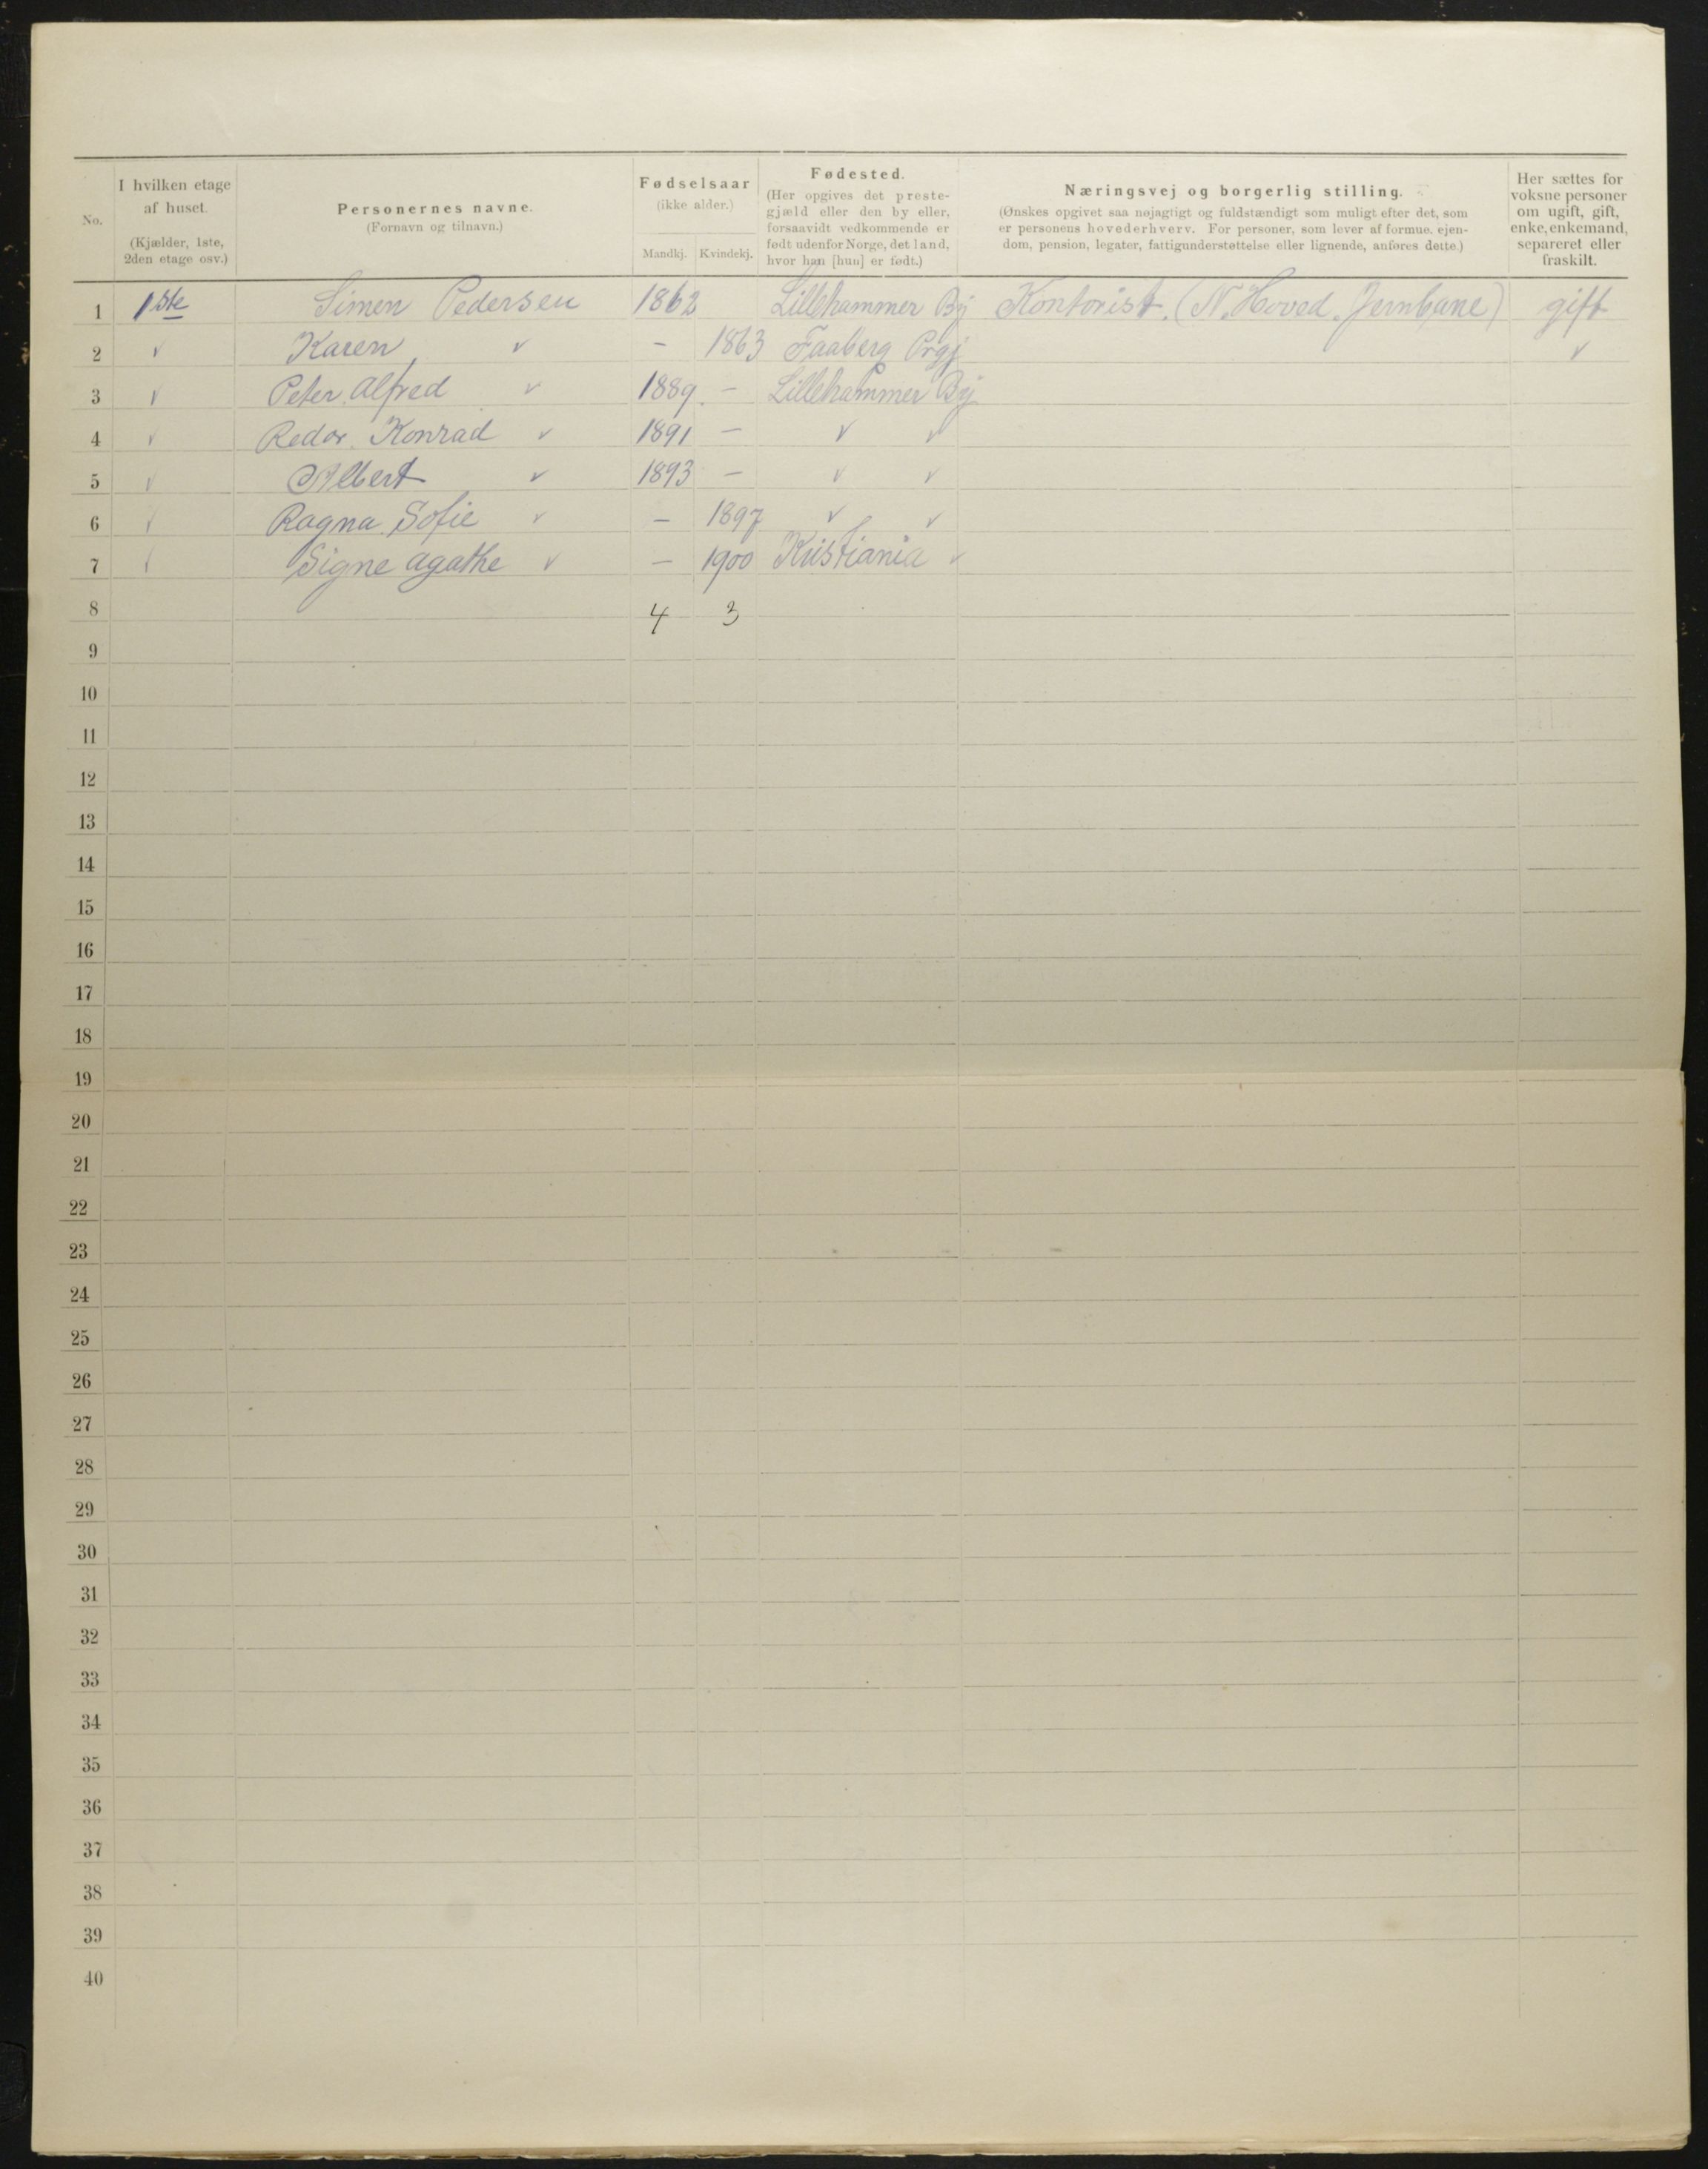 No.
I hvilken etage af huset.
(Kjælder, 1ste, 2den etage osv.)
Personernes navne.
(Fornavn og tilnavn.)
Fødselsaar
(ikke alder.)
Mandkj. Kvindekj.
Fødested.
(Her opgives det preste-
gjæld eller den by eller,
forsaavidt vedkommende er
født udenfor Norge, det land,
hvor han [hun] er født.)
Næringsvej og borgerlig stilling.
(Ønskes opgivet saa nøjagtigt og fuldstændigt som muligt efter det, som
er personens hovederhverv. For personer, som lever af formue, ejen-
dom, pension, legater, fattigunderstøttelse eller lignende, anføres dette.)
Her sættes for
voksne personer
om ugift, gift,
enke, enkemand,
separeret eller
fraskilt.
1 1ste Simen Pedersen 1862 Lillehammer By Kontorist. (N. Hoved. Jernbane) gift
2 √ Karen √ — 1863 Faaberg Prgj √
3 √ Peter Alfred √ 1889. — Lillehammer By
4 √ Redor Konrad √ 1891 — √ √
5 √ Albert √ 1893 — √ √
6 √ Ragna Sofie √ — 1897 √ √
7 √ Signe Agathe √ — 1900 Kristiania √
8 4 3
9
10
11
12
13
14
15
16
17
18
19
20
21
22
23
24
25
26
27
28
29
30
31
32
33
34
35
36
37
38
39
40